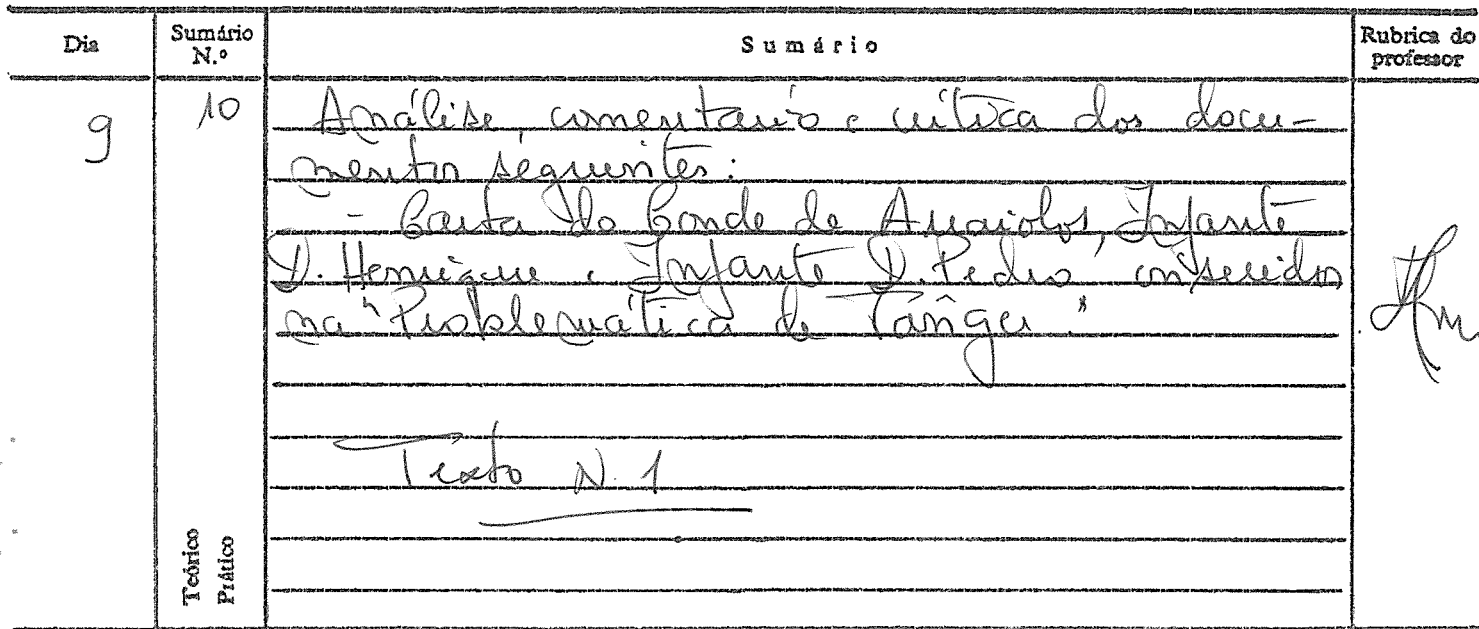 Dia
Sumário N.º
Sumário
Rubrica do professor
9
10
Análise, comentário e crítica dos docu-
mentos seguintes:
- Carta do Conde de Arraiolos, Infante
D. Henrique e Infante D. Pedro inseridos
na "Problemática de Tânger"
Texto N. 1
Teórico
Prático